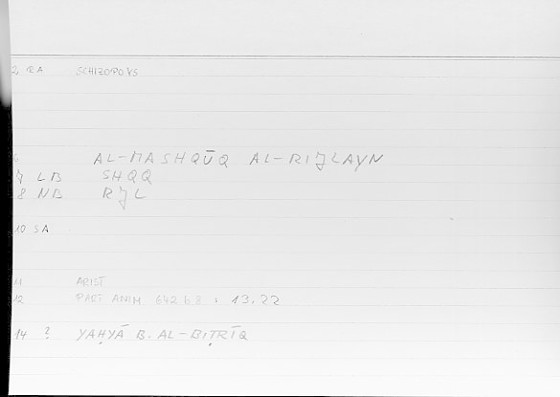 2 RA SCHIZOPOUS
6 AL-MASHQŪQ AL-RIJLAYN
7 LB SHQQ
8 NB RJL
10 SA
11 ARIST
12 PART ANIM 642 b 8 ; 13.22
14 ? YAḤYĀ B. AL-BIṬRĪQ